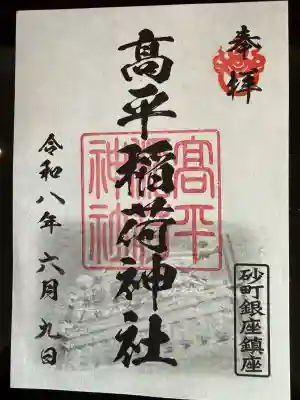 奉拝
砂町銀座鎮座
髙平稲荷神社
髙平
稲荷
神社
令和八年六月九日